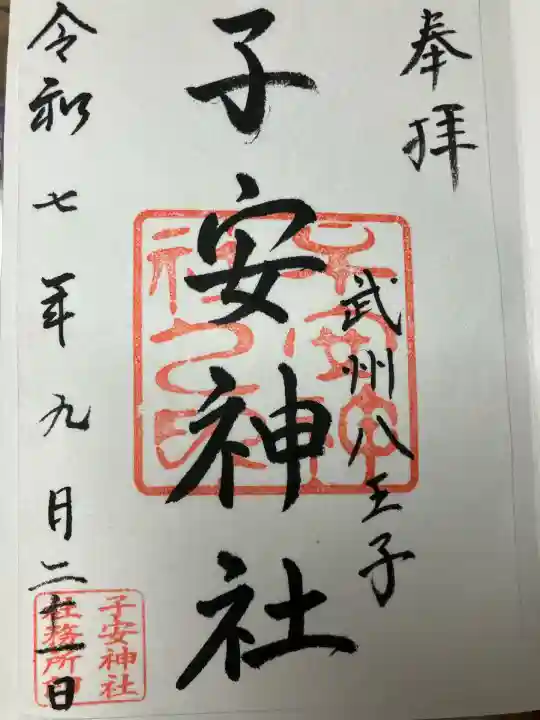 奉拝
武州八王子
子安神社
令和七年九月二十一日
子安神社
社務所印
子安神
社之印